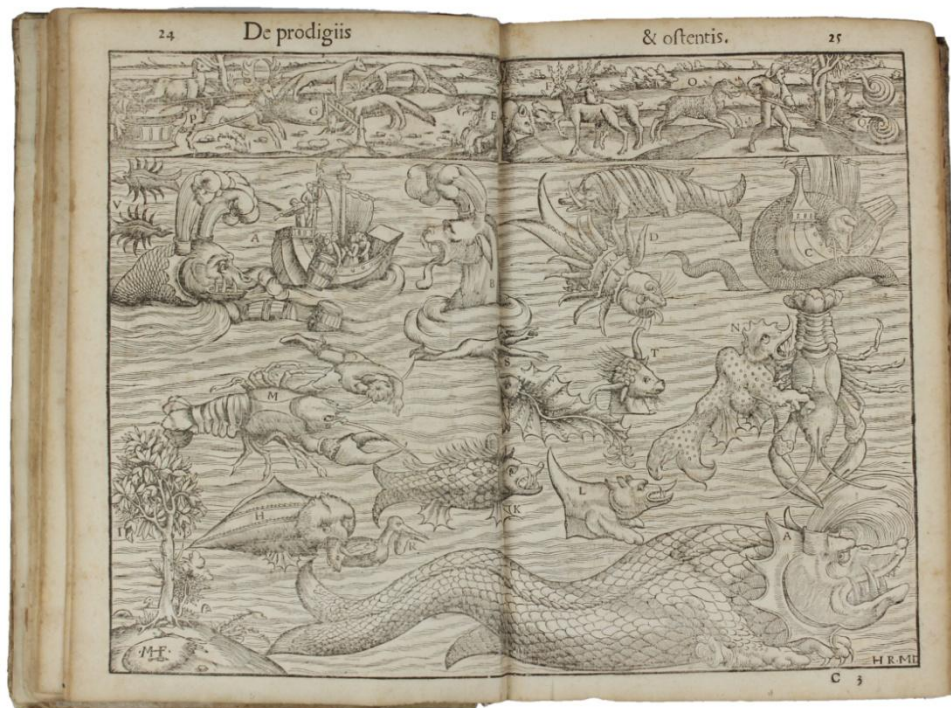 24 De prodigiis
& oſtentis. 25
P
G
E
F
O
V
A
D
C
B
S
T
N
M
H
K
L
I
R
A
·M·F·
H R·MD
C 3